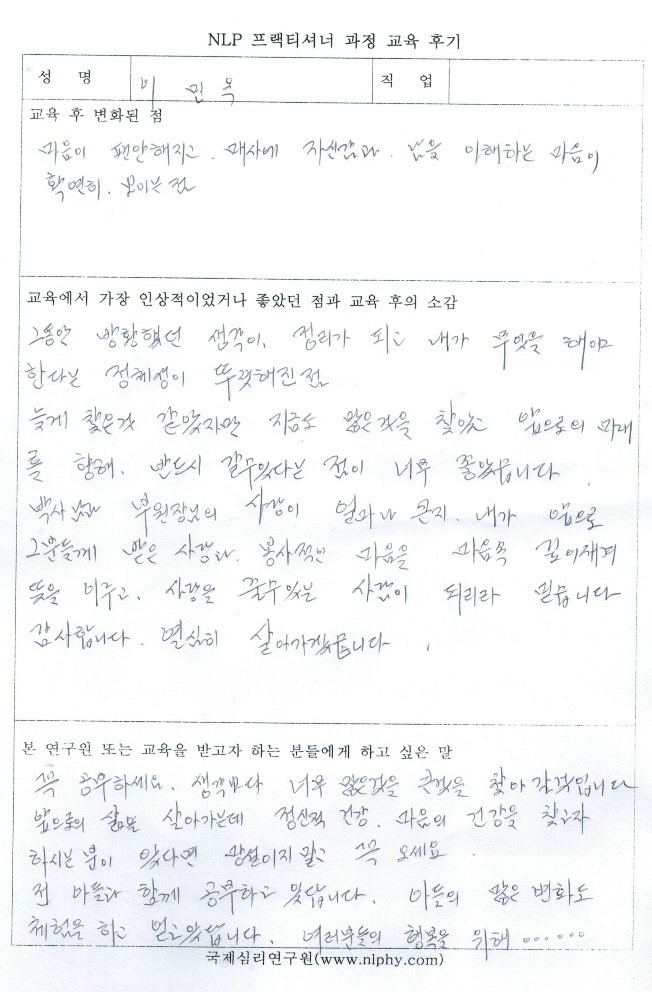 NLP 프랙티셔너 과정 교육 후기
성 명 이 민 목 직 업
교육 후 변화된 점
마음이 편안해지고. 매사에 자신감과. 남을 이해하는 마음이
확연히. 보이는 점
교육에서 가장 인상적이었거나 좋았던 점과 교육 후의 소감
그동안 방황했던 생각이. 정리가 되고 내가 무엇을 해야
한다는 정체성이 뚜렷해진점
늦게 찾은것 같았지만 지금도 많은것을 찾았고 앞으로의 미래
를 향해. 반드시 갈수있다는 점이 너무 좋았읍니다
박사님과 부원장님의 사랑이 얼마나 큰지. 내가 앞으로
그분들께 받은 사랑과. 봉사적인 마음을 마음속 깊이새겨
뜻을 이루고. 사랑을 줄수있는 사람이 되리라 믿읍니다
감사합니다. 열심히 살아가겠읍니다.
본 연구원 또는 교육을 받고자 하는 분들에게 하고 싶은 말
꼭 공부하세요. 생각보다 너무 많은것을 큰것을 찾아 갈것입니다
앞으로의 삶을 살아가는데 정신적 건강. 마음의 건강을 찾고자
하시는 분이 있다면 망설이지 말고 꼭 오세요.
전 아들과 함께 공부하고 있답니다. 아들의 많은 변화도
체험을 하고 얻고있답니다. 여러분들의 행복을 위해......
국제심리연구원(www.nlphy.com)